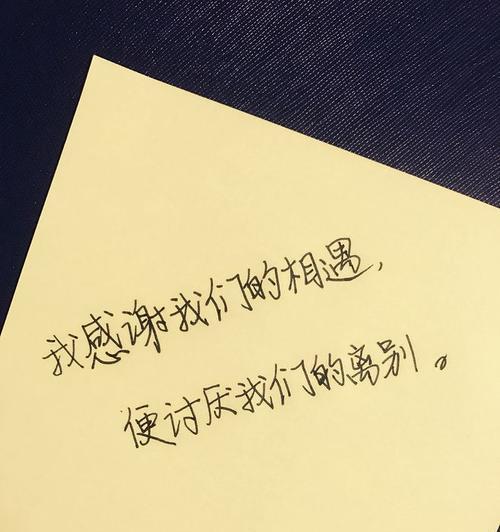 我感谢我们的相遇，
便讨厌我们的离别。